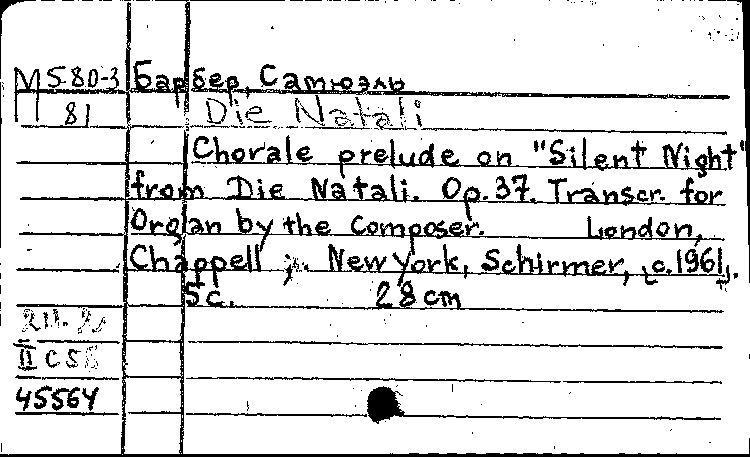 М 5.80-3 Барбер, Самюэль
81 Die Natali
Chorale prelude on "Silent Night"
from Die Natali. Op. 37. Transcr. for
Organ by the Composer. London,
Chappell ; New York, Schirmer, [c.1961].
5 c. 28 cm
II C 58
45564